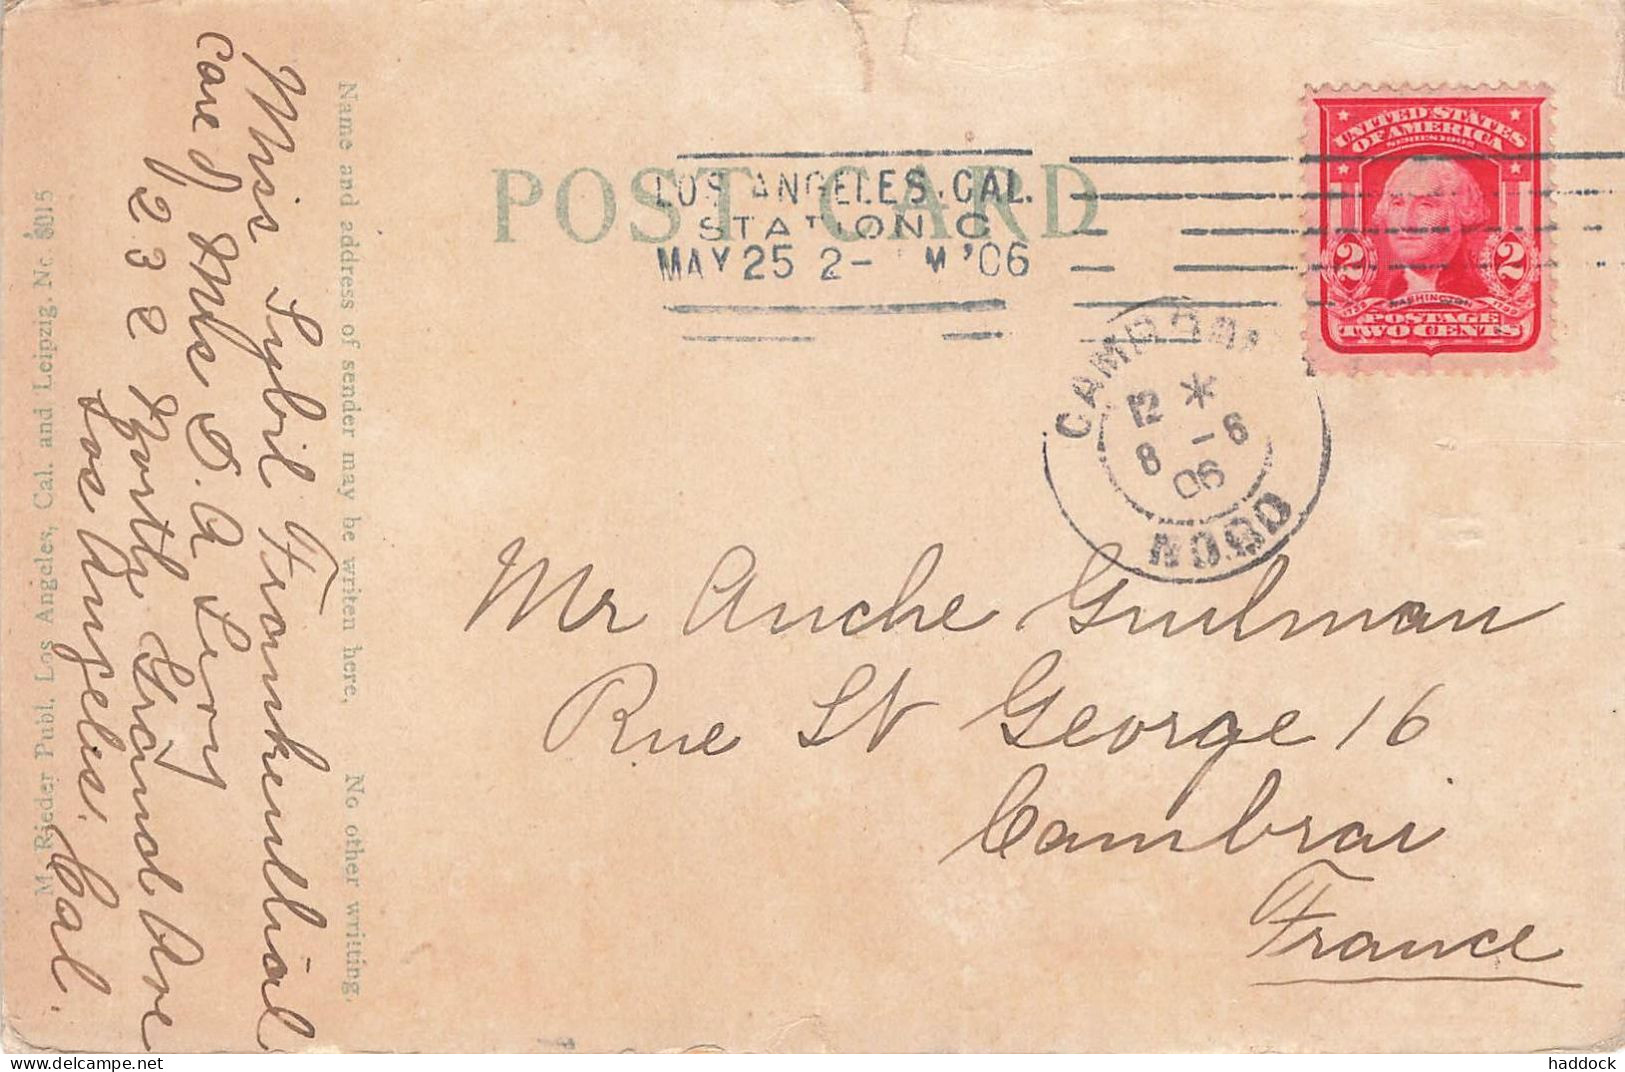 POST CARD
LOS ANGELES, CAL.
STATION C
MAY 25 2- M '06
UNITED STATES
OF AMERICA
SERIES 1902
2 2
WASHINGTON
POSTAGE
TWO CENTS
CAMBRAI
12 *
8 - 6
06
NORD
Mr Auche Guilman
Rue St George 16
Cambrai
France
Miss Sybil Frankenthal
care of Mrs S. A Levy
232 North Grand Ave
Los Angeles. Cal.
Name and address of sender may be writen here. No other writting.
M. Rieder Publ. Los Angeles, Cal. and Leipzig. No. 8015
haddock